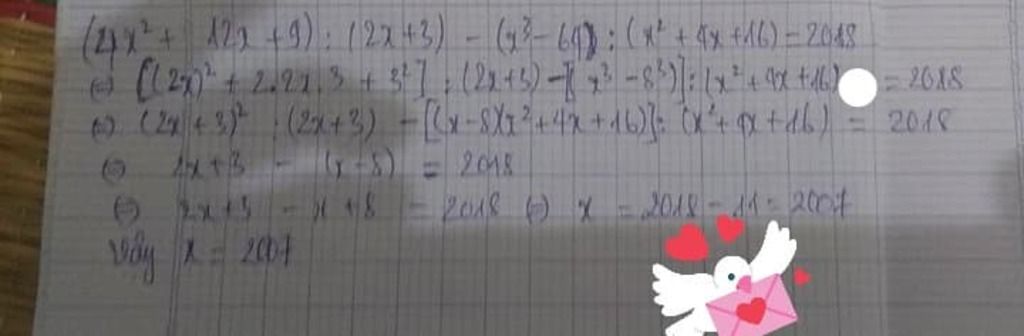 (4x² + 12x + 9) : (2x+3) - (x³ - 64) : (x² + 4x + 16) = 2018
(=) [(2x)² + 2.2x.3 + 3²] : (2x+3) - [x³ - 8³)] : (x² + 4x + 16) = 2018
(=) (2x + 3)² : (2x+3) - [(x-8)(x² + 4x + 16)] : (x² + 4x + 16) = 2018
(=) 2x+3 - (x-8) = 2018
(=) 2x+3 - x + 8 = 2018 (=) x = 2018 - 11 = 2007
Vậy x = 2007